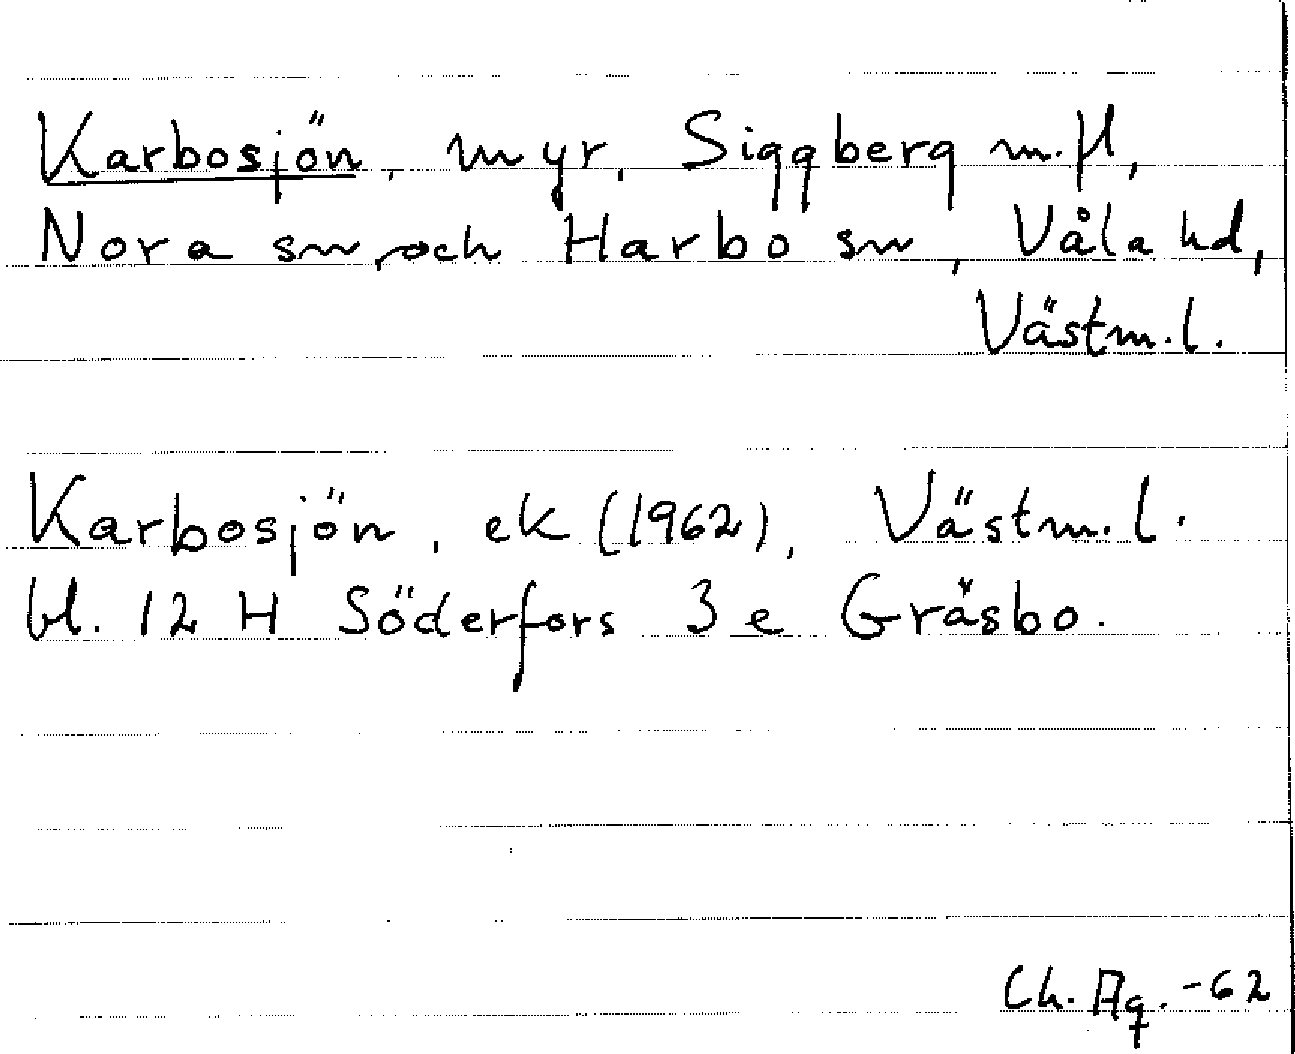 Karbosjön, myr, Siggberg m.fl,
Nora sn, och Harbo sn, Våla hd,
Västm.l.
Karbosjön, ek (1962), Västm.l.
bl. 12 H Söderfors 3 e Gräsbo.
Ch. Ag. -62